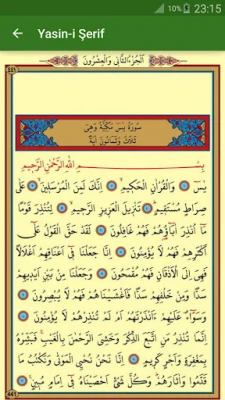 23:15
Yasin-i Şerif
اَلْجُزْءُ الثَّانِى وَالْعِشْرُونَ
سُورَةُ يٰسٓ مَكِّيَّةٌ وَهِىَ
ثَلَاثٌ وَثَمَانُونَ اٰيَةً
بِسْمِ اللّٰهِ الرَّحْمٰنِ الرَّحِيمِ
يٰسٓ وَالْقُرْاٰنِ الْحَكِيمِ اِنَّكَ لَمِنَ الْمُرْسَلِينَ عَلٰى
صِرَاطٍ مُسْتَقِيمٍ تَنْزِيلَ الْعَزِيزِ الرَّحِيمِ لِتُنْذِرَ قَوْمًا
مَٓا اُنْذِرَ اٰبَٓاؤُ۬هُمْ فَهُمْ غَافِلُونَ لَقَدْ حَقَّ الْقَوْلُ عَلٰٓى
اَكْثَرِهِمْ فَهُمْ لَا يُؤْمِنُونَ اِنَّا جَعَلْنَا فِٓى اَعْنَاقِهِمْ اَغْلَالًا
فَهِىَ اِلَى الْاَذْقَانِ فَهُمْ مُقْمَحُونَ وَجَعَلْنَا مِنْ بَيْنِ اَيْدِيهِمْ
سَدًّا وَمِنْ خَلْفِهِمْ سَدًّا فَاَغْشَيْنَاهُمْ فَهُمْ لَا يُبْصِرُونَ
وَسَوَٓاءٌ عَلَيْهِمْ ءَاَنْذَرْتَهُمْ اَمْ لَمْ تُنْذِرْهُمْ لَا يُؤْمِنُونَ
اِنَّمَا تُنْذِرُ مَنِ اتَّبَعَ الذِّكْرَ وَخَشِىَ الرَّحْمٰنَ بِالْغَيْبِ فَبَشِّرْهُ
بِمَغْفِرَةٍ وَاَجْرٍ كَرِيمٍ اِنَّا نَحْنُ نُحْيِ الْمَوْتٰى وَنَكْتُبُ مَا
قَدَّمُوا وَاٰثَارَهُمْ وَكُلَّ شَىْءٍ اَحْصَيْنَاهُ فِٓى اِمَامٍ مُبِينٍ